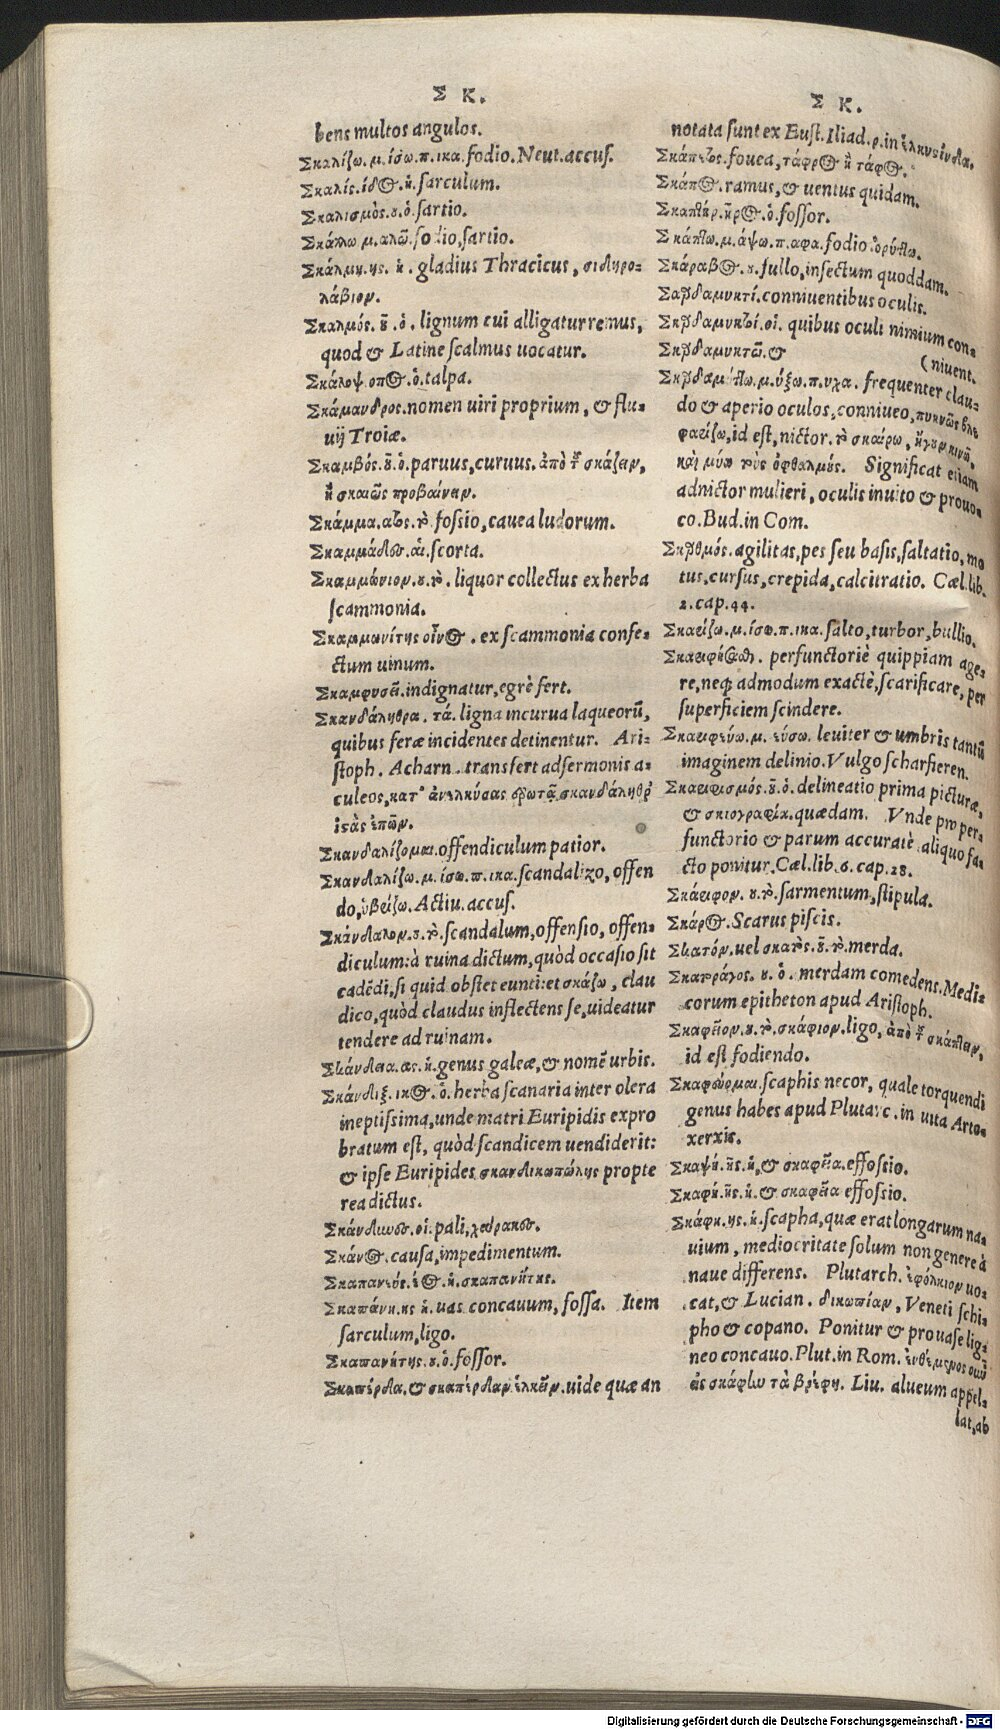 Σ Κ.
bens multos angulos.
Σκαλίζω.μ.ίσω.π.ικα.fodio.Neut.accus.
Σκαλίς.ίδος.ἡ.sarculum.
Σκαλισμὸς.ου.ὁ.sartio.
Σκάλλω μ.αλῶ.fodio,sartio.
Σκάλμη.ης. ἡ. gladius Thracicus, σιδηρο-
λάβιον.
Σκαλμός.οῦ.ὁ. lignum cui alligatur remus,
quod & Latine scalmus uocatur.
Σκάλοψ οπος.ὁ.talpa.
Σκάμανδρος.nomen uiri proprium, & flu-
uij Troiæ.
Σκαμβός.οῦ.ὁ.paruus,curuus.ἀπὸ τοῦ σκάζειν,
ἢ σκαιῶς προβαίνειν.
Σκάμμα.ατος.τὸ fossio,cauea ludorum.
αἱ.scorta.
Σκαμμώνιον.ου.τὸ. liquor collectus ex herba
scammonia.
Σκαμμωνίτης οἶνος. ex scammonia confe-
ctum uinum.
indignatur,egrè fert.
Σκανδάληθρα. τά. ligna incurua laqueorũ,
quibus feræ incidentes detinentur. Ari-
stoph. Acharn. transfert ad sermonis a-
culeos,κατ' ἀνελκύσας ἐρωτᾷ σκανδάληθρ
ἱστὰς ἐπῶν.
Σκανδαλίζομαι.offendiculum patior.
Σκανδαλίζω.μ.ίσω.π.ικα.scandalizo,offen
do,ὑβρίζω.Actiu.accus.
Σκάνδαλον.ου.τὸ.scandalum,offensio,offen-
diculum:à ruina dictum,quòd occasio sit
cadẽdi,si quid obstet eunti:et σκάζω, clau
dico,quòd claudus inflectens se,uideatur
tendere ad ruinam.
Σκάνδεια.ας.ἡ.genus galeæ,& nomẽ urbis.
Σκάνδιξ.ικος.ὁ.herba scanaria inter olera
ineptissima,unde matri Euripidis expro
bratum est, quòd scandicem uendiderit:
& ipse Euripides σκανδικοπώλης propte
rea dictus.
οἱ.pali,χάρακες.
Σκάνος.causa,impedimentum.
Σκαπανεύς.έος.ἡ.σκαπανήτης.
Σκαπάνη.ης ἡ.uas concauum, fossa. Item
sarculum,ligo.
Σκαπανήτης.ου.ὁ.fossor.
Σκαπέρδα.& σκαπέρδαν ἑλκεῖν.uide quæ an
Σ Κ.
notata sunt ex Eust.Iliad.ρ.in ἑλκυστίνδα.
Σκάπετος.fouea,τάφρος ἢ τάφος.
Σκάπος.ramus,& uentus quidam.
Σκαπτήρ.ῆρος.ὁ.fossor.
Σκάπτω.μ.άψω.π.αφα.fodio ὀρύττω.
Σκάραβος.ου.fullo,insectum quoddam.
Σκαρδαμυκτί.conniuentibus oculis.
Σκαρδαμυκτοί.οἱ. quibus oculi nimium con-
(niuent.
Σκαρδαμυκτῶ.&
Σκαρδαμύττω.μ.ύξω.π.υχα. frequenter clau-
do & aperio oculos,conniueo,πυκνῶς βλε
φαρίζω,id est,nictor.τὸ σκαίρω,
καὶ μύω τοὺς ὀφθαλμούς. Significat etiam
adnictor mulieri, oculis inuito & prouo-
co.Bud.in Com.
Σκαρθμός.agilitas,pes seu basis,saltatio,mo
tus,cursus,crepida,calcitratio. Cæl.lib.
2.cap.44.
Σκαρίζω.μ.ίσω.π.ικα.salto,turbor,bullio.
Σκαριφᾶσθαι. perfunctoriè quippiam age-
re,neq; admodum exactè,scarificare, per
superficiem scindere.
Σκαριφεύω.μ. εύσω. leuiter & umbris tantũ
imaginem delinio.Vulgo scharfieren.
Σκαριφισμός.οῦ.ὁ.delineatio prima picturæ,
& σκιογραφία.quædam. Vnde pro per-
functorio & parum accuratè aliquo fa-
cto ponitur.Cæl.lib.6.cap.28.
Σκάριφον.ου.τὸ.sarmentum,stipula.
Σκάρος.Scarus piscis.
Σκατόν.uel σκατὸς.οῦ.τὸ.merda.
Σκατοφάγος.ου.ὁ. merdam comedens.Medi-
corum epitheton apud Aristoph.
Σκαφεῖον.ου.τὸ.σκάφιον.ligo, ἀπὸ τοῦ σκάπτειν,
id est fodiendo.
Σκαφεύομαι.scaphis necor, quale torquendi
genus habes apud Plutarc.in uita Arto-
xerxis.
Σκαψή.ῆς.ἡ,& σκαφεῖα.effossio.
Σκαφή.ῆς.ἡ.& σκαφεῖα effossio.
Σκάφη.ης.ἡ.scapha,quæ erat longarum na-
uium, mediocritate solum non genere à
naue differens. Plutarch. ἐφόλκιον uo-
cat,& Lucian. δικωπίαν, Veneti schi-
pho & copano. Ponitur & pro uase lig-
neo concauo.Plut.in Rom. ἐνθέμενος οὖν
εἰς σκάφην τὰ βρέφη. Liu. alueum appel-
lat,ab
Digitalisierung gefördert durch die Deutsche Forschungsgemeinschaft - DFG